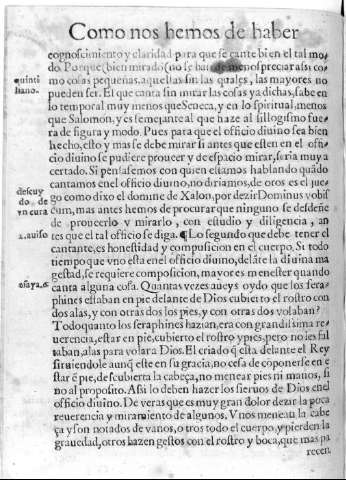 Como nos hemos de haber
cognoscimiento y claridad para que se cante bi en el tal mo-
do. Porque (bien mirado) no se han de menospreciar assi co-
quinti mo cosas pequeñas, aquellas sin las quales, las mayores no
liano. pueden ser. El que canta sin mirar las cosas ya dichas, sabe en
lo temporal muy menos que Seneca, y en lo spiritual, menos
que Salomon, y es semejante al que haze al sillogismo fue-
ra de figura y modo. Pues para que el officio diuino sea bien
hecho, esto y mas se debe mirar si antes que esten en el offi-
cio diuino se pudiere proueer y de espacio mirar, seria muy a
certado. Si pensassemos con quien estamos hablando quãdo
cantamos enel officio diuino, no diriamos, de oros es el jue-
descuy go como dixo el domine de Xalon, por dezir Dominus vobis
do de cum, mas antes hemos de procurar que ninguno se desdeñe
vn cura de proueerlo y mirarlo, con estudio y diligencia, an
2. auiso tes que el tal officio se diga. ¶ Lo segundo que debe tener el
cantante, es honestidad y compusicion en el cuerpo. Si todo
tiempo que vno esta enel officio diuino, delãte la diuina ma
gestad, se requiere composicion, mayor es menester quando
esaya. 6 canta alguna cosa. Quantas vezes aueys oydo que los sera-
phines estaban en pie delante de Dios cubierto el rostro con
dos alas, y con otras dos los pies, y con otras dos volaban?
Todo quanto los seraphines hazian, era con grandissima re-
uerencia, estar en pie, cubierto el rostro y pies, pero no les fal
taban, alas para volar a Dios. El criado q̃ esta delante el Rey
siruiendole aunq̃ este en su gracia, no cesa de conponerse en e
star ẽ pie, descubierta la cabeça, no menear pies ni manos, si
no al proposito. Assi lo deben hazer los sieruos de Dios enel
officio diuino. De veras que es muy gran dolor dezir la poca
reuerencia y miramiento de algunos. Vnos menean la cabe
ça y son notados de vanos, o tros todo el cuerpo, y pierden la
grauedad, otros hazen gestos con el rostro y boca, que mas pa
recen.